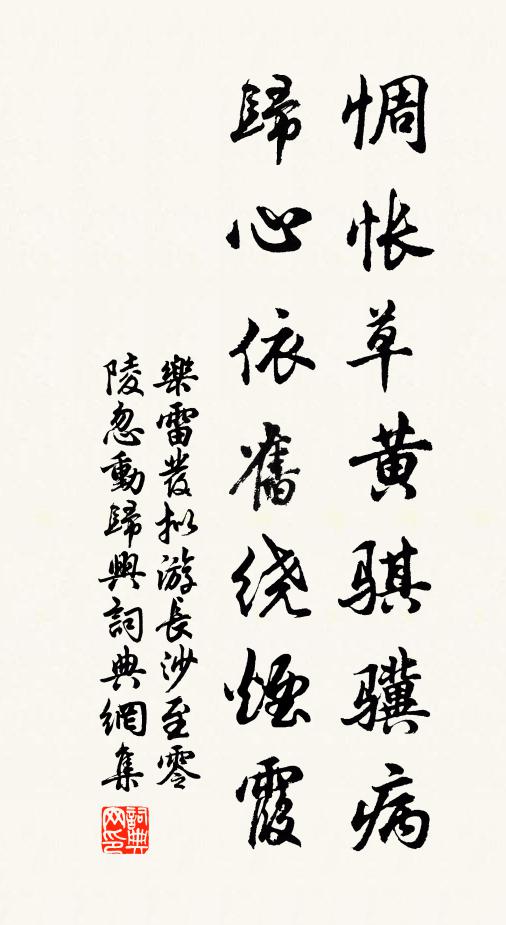 惆怅草黄骐骥病
歸心依舊绕煙霞
樂雷發拟游長沙至零
陵忽動歸興詞典網集
詞典
网印